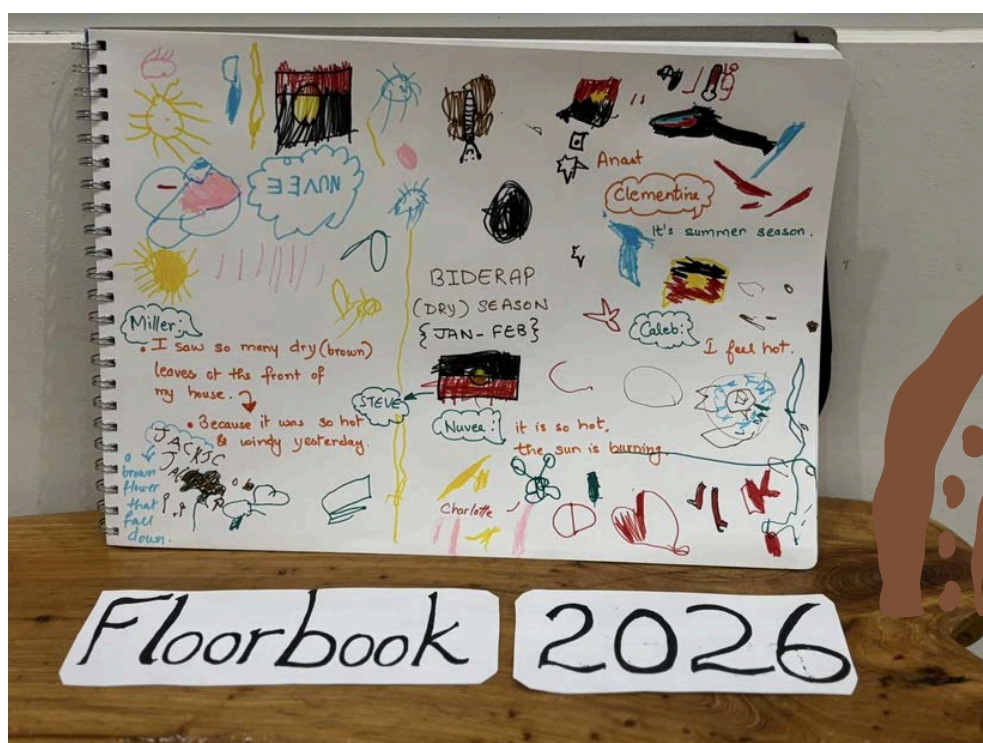 NUVEE
Anast
Clementine
It's summer season.
BIDERAP
(DRY) SEASON
{JAN-FEB}
Miller:
• I saw so many dry (brown)
leaves at the front of
my house.
• Because it was so hot
& windy yesterday.
Caleb:
I feel hot.
STEVE
Nuvee:
it is so hot,
the sun is burning
JACKJC
a
brown
flower
that
fall
down.
Charlotte
Floorbook 2026